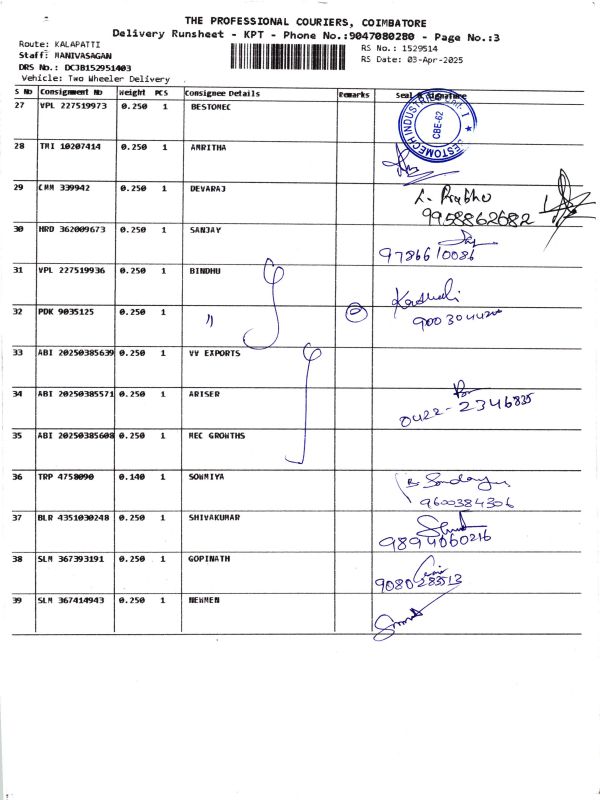 THE PROFESSIONAL COURIERS, COIMBATORE
Delivery Runsheet - KPT - Phone No.:9047080280 - Page No.:3
Route: KALAPATTI
Staff: MANIVASAGAN
DRS No.: DCJB152951403
Vehicle: Two Wheeler Delivery
RS No.: 1529514
RS Date: 03-Apr-2025
S No Consignment No Weight PCS Consignee Details Remarks Seal & Signature
27 VPL 227519973 0.250 1 BESTOMEC
BESTOMECH INDUSTRIES CBE-62
28 TMI 10207414 0.250 1 AMRITHA
29 CMM 339942 0.250 1 DEVARAJ
L. Prabhu
9958862682
30 HRD 362009673 0.250 1 SANJAY
9786610086
31 VPL 227519936 0.250 1 BINDHU
32 PDK 9035125 0.250 1 "
33 ABI 20250385639 0.250 1 VV EXPORTS
34 ABI 20250385571 0.250 1 ARISER
0422-2346835
35 ABI 20250385608 0.250 1 MEC GROWTHS
36 TRP 4758090 0.140 1 SOWMIYA
9600384306
37 BLR 4351030248 0.250 1 SHIVAKUMAR
9894060216
38 SLM 367393191 0.250 1 GOPINATH
9080283512
39 SLM 367414943 0.250 1 NEWMEN